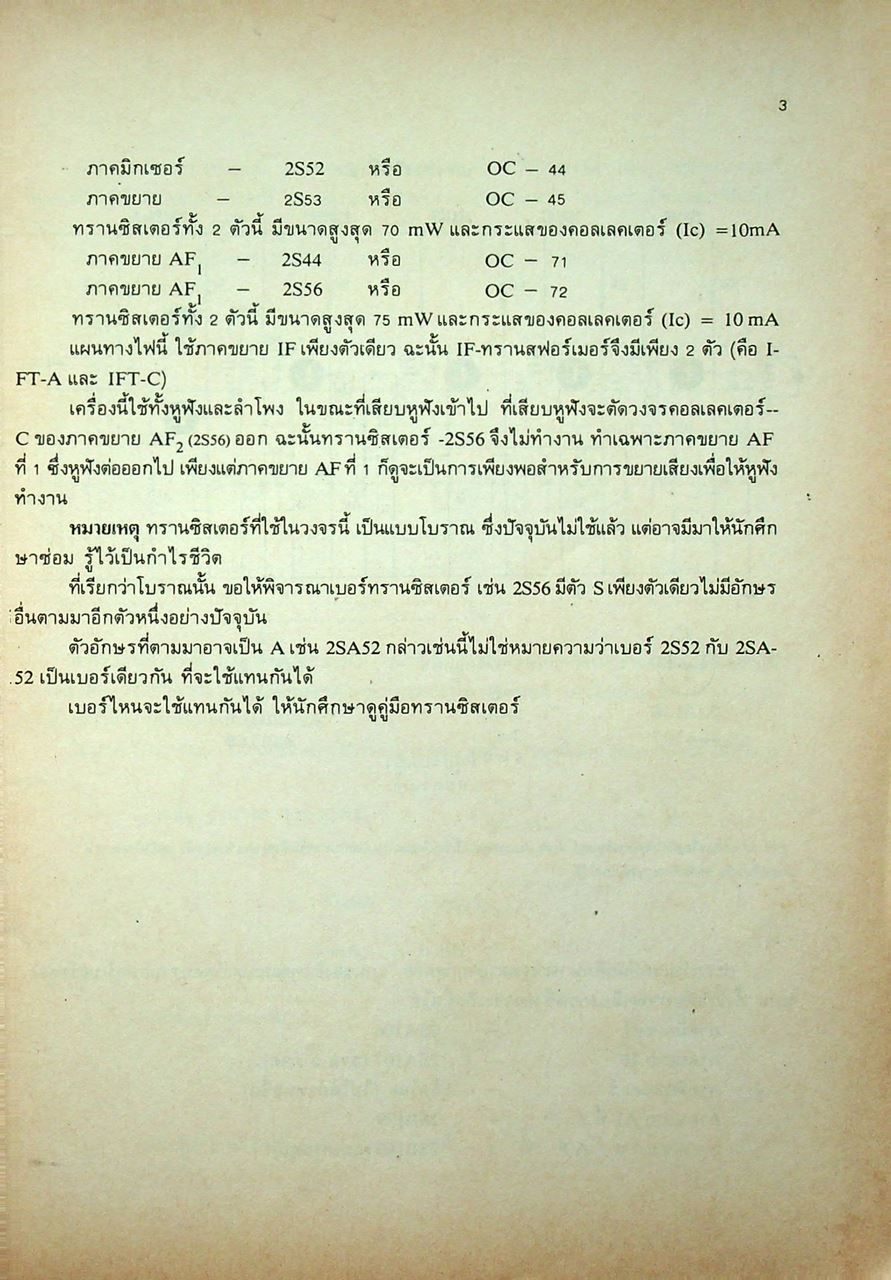 3
ภาคมิกเซอร์ – 2S52 หรือ OC – 44
ภาคขยาย – 2S53 หรือ OC – 45
ทรานซิสเตอร์ทั้ง 2 ตัวนี้ มีขนาดสูงสุด 70 mW และกระแสของคอลเลคเตอร์ (Ic) =10mA
ภาคขยาย AF₁ – 2S44 หรือ OC – 71
ภาคขยาย AF₁ – 2S56 หรือ OC – 72
ทรานซิสเตอร์ทั้ง 2 ตัวนี้ มีขนาดสูงสุด 75 mW และกระแสของคอลเลคเตอร์ (Ic) = 10 mA
แผนทางไฟนี้ ใช้ภาคขยาย IF เพียงตัวเดียว ฉะนั้น IF-ทรานสฟอร์เมอร์จึงมีเพียง 2 ตัว (คือ I-
FT-A และ IFT-C)
เครื่องนี้ใช้ทั้งหูฟังและลำโพง ในขณะที่เสียบหูฟังเข้าไป ที่เสียบหูฟังจะตัดวงจรคอลเลคเตอร์--
C ของภาคขยาย AF₂ (2S56) ออก ฉะนั้นทรานซิสเตอร์ -2S56 จึงไม่ทำงาน ทำเฉพาะภาคขยาย AF
ที่ 1 ซึ่งหูฟังต่อออกไป เพียงแต่ภาคขยาย AF ที่ 1 ก็ดูจะเป็นการเพียงพอสำหรับการขยายเสียงเพื่อให้หูฟัง
ทำงาน
หมายเหตุ ทรานซิสเตอร์ที่ใช้ในวงจรนี้ เป็นแบบโบราณ ซึ่งปัจจุบันไม่ใช้แล้ว แต่อาจมีมาให้นักศึก
ษาซ่อม รู้ไว้เป็นกำไรชีวิต
ที่เรียกว่าโบราณนั้น ขอให้พิจารณาเบอร์ทรานซิสเตอร์ เช่น 2S56 มีตัว S เพียงตัวเดียวไม่มีอักษร
อื่นตามมาอีกตัวหนึ่งอย่างปัจจุบัน
ตัวอักษรที่ตามมาอาจเป็น A เช่น 2SA52 กล่าวเช่นนี้ไม่ใช่หมายความว่าเบอร์ 2S52 กับ 2SA-
52 เป็นเบอร์เดียวกัน ที่จะใช้แทนกันได้
เบอร์ไหนจะใช้แทนกันได้ ให้นักศึกษาดูคู่มือทรานซิสเตอร์